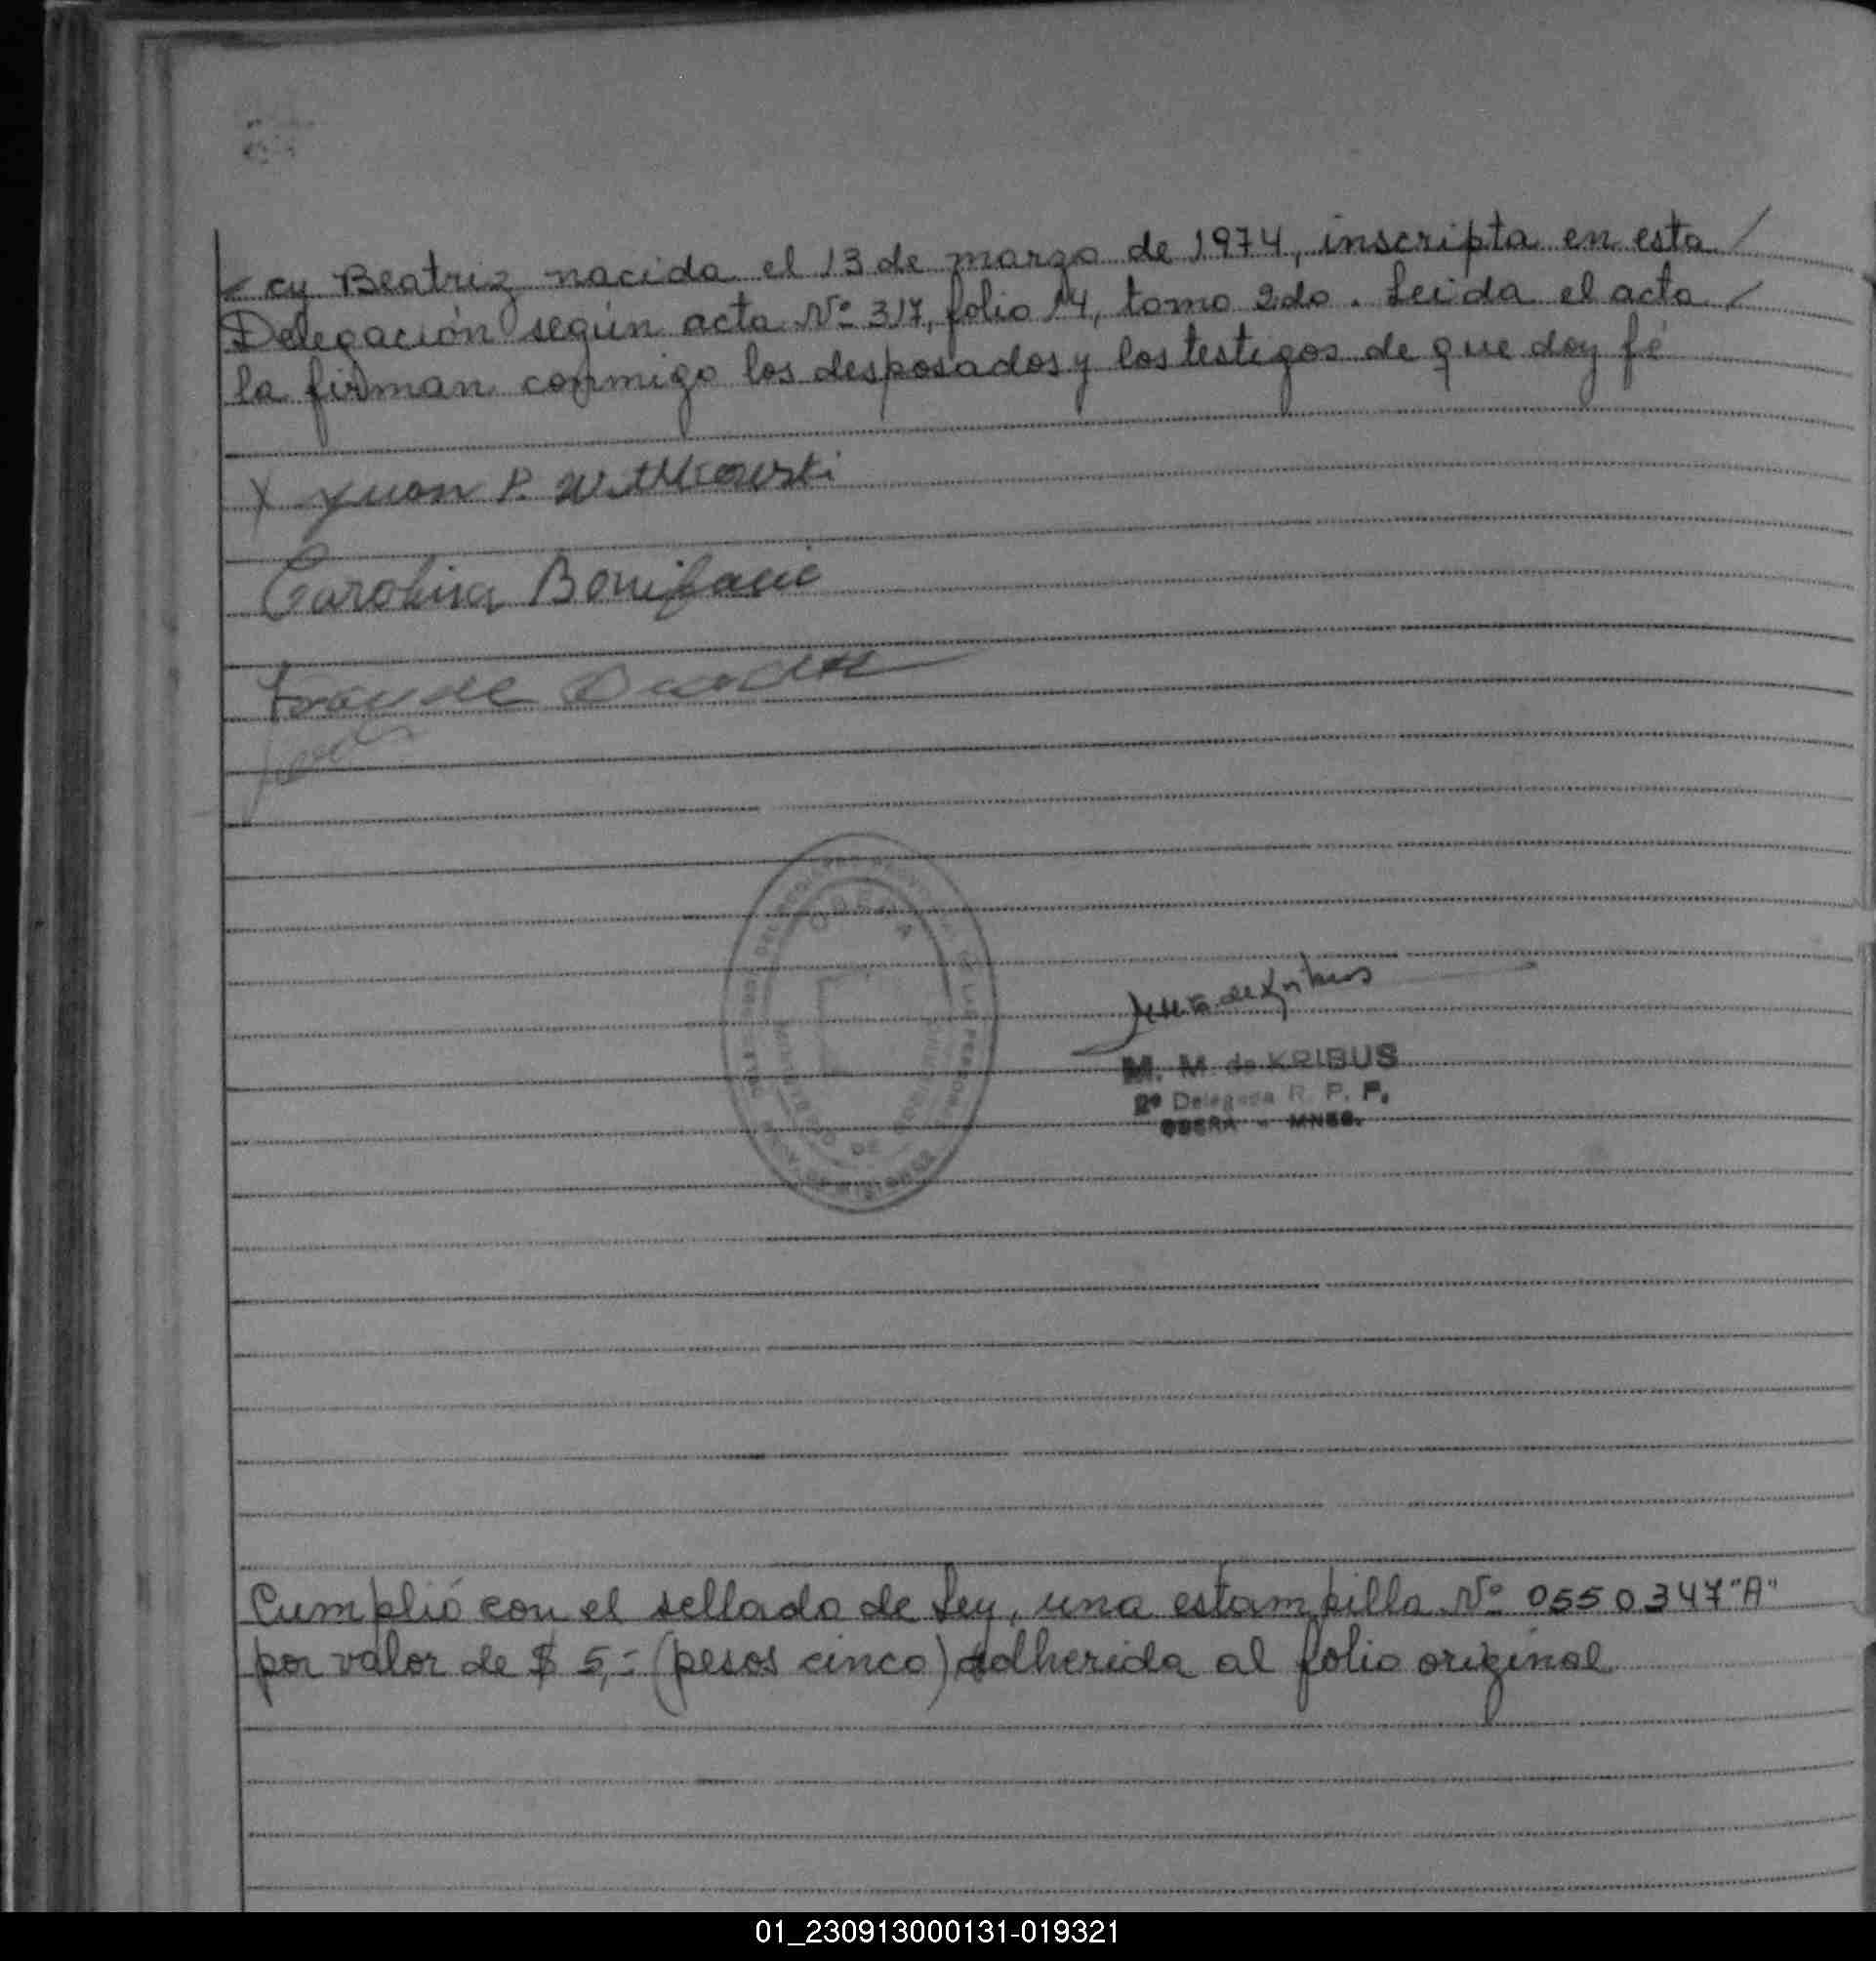 cy Beatriz nacida el 13 de marzo de 1974, inscripta en esta /
Delegación según acta Nº 317, folio 14, tomo 2do. Leida el acta /
la firman conmigo los desposados y los testigos de que doy fé
X Juan P. Witkowski
Carolina Bonifacio
OBERA
DE MISIONES
M. M. de KRIBUS
2ª Delegada R. P. P.
OBERA - MNES.
Cumplió con el sellado de Ley, una estampilla Nº 0550347 "A"
por valor de $ 5,- (pesos cinco) adherida al folio original
01_230913000131-019321